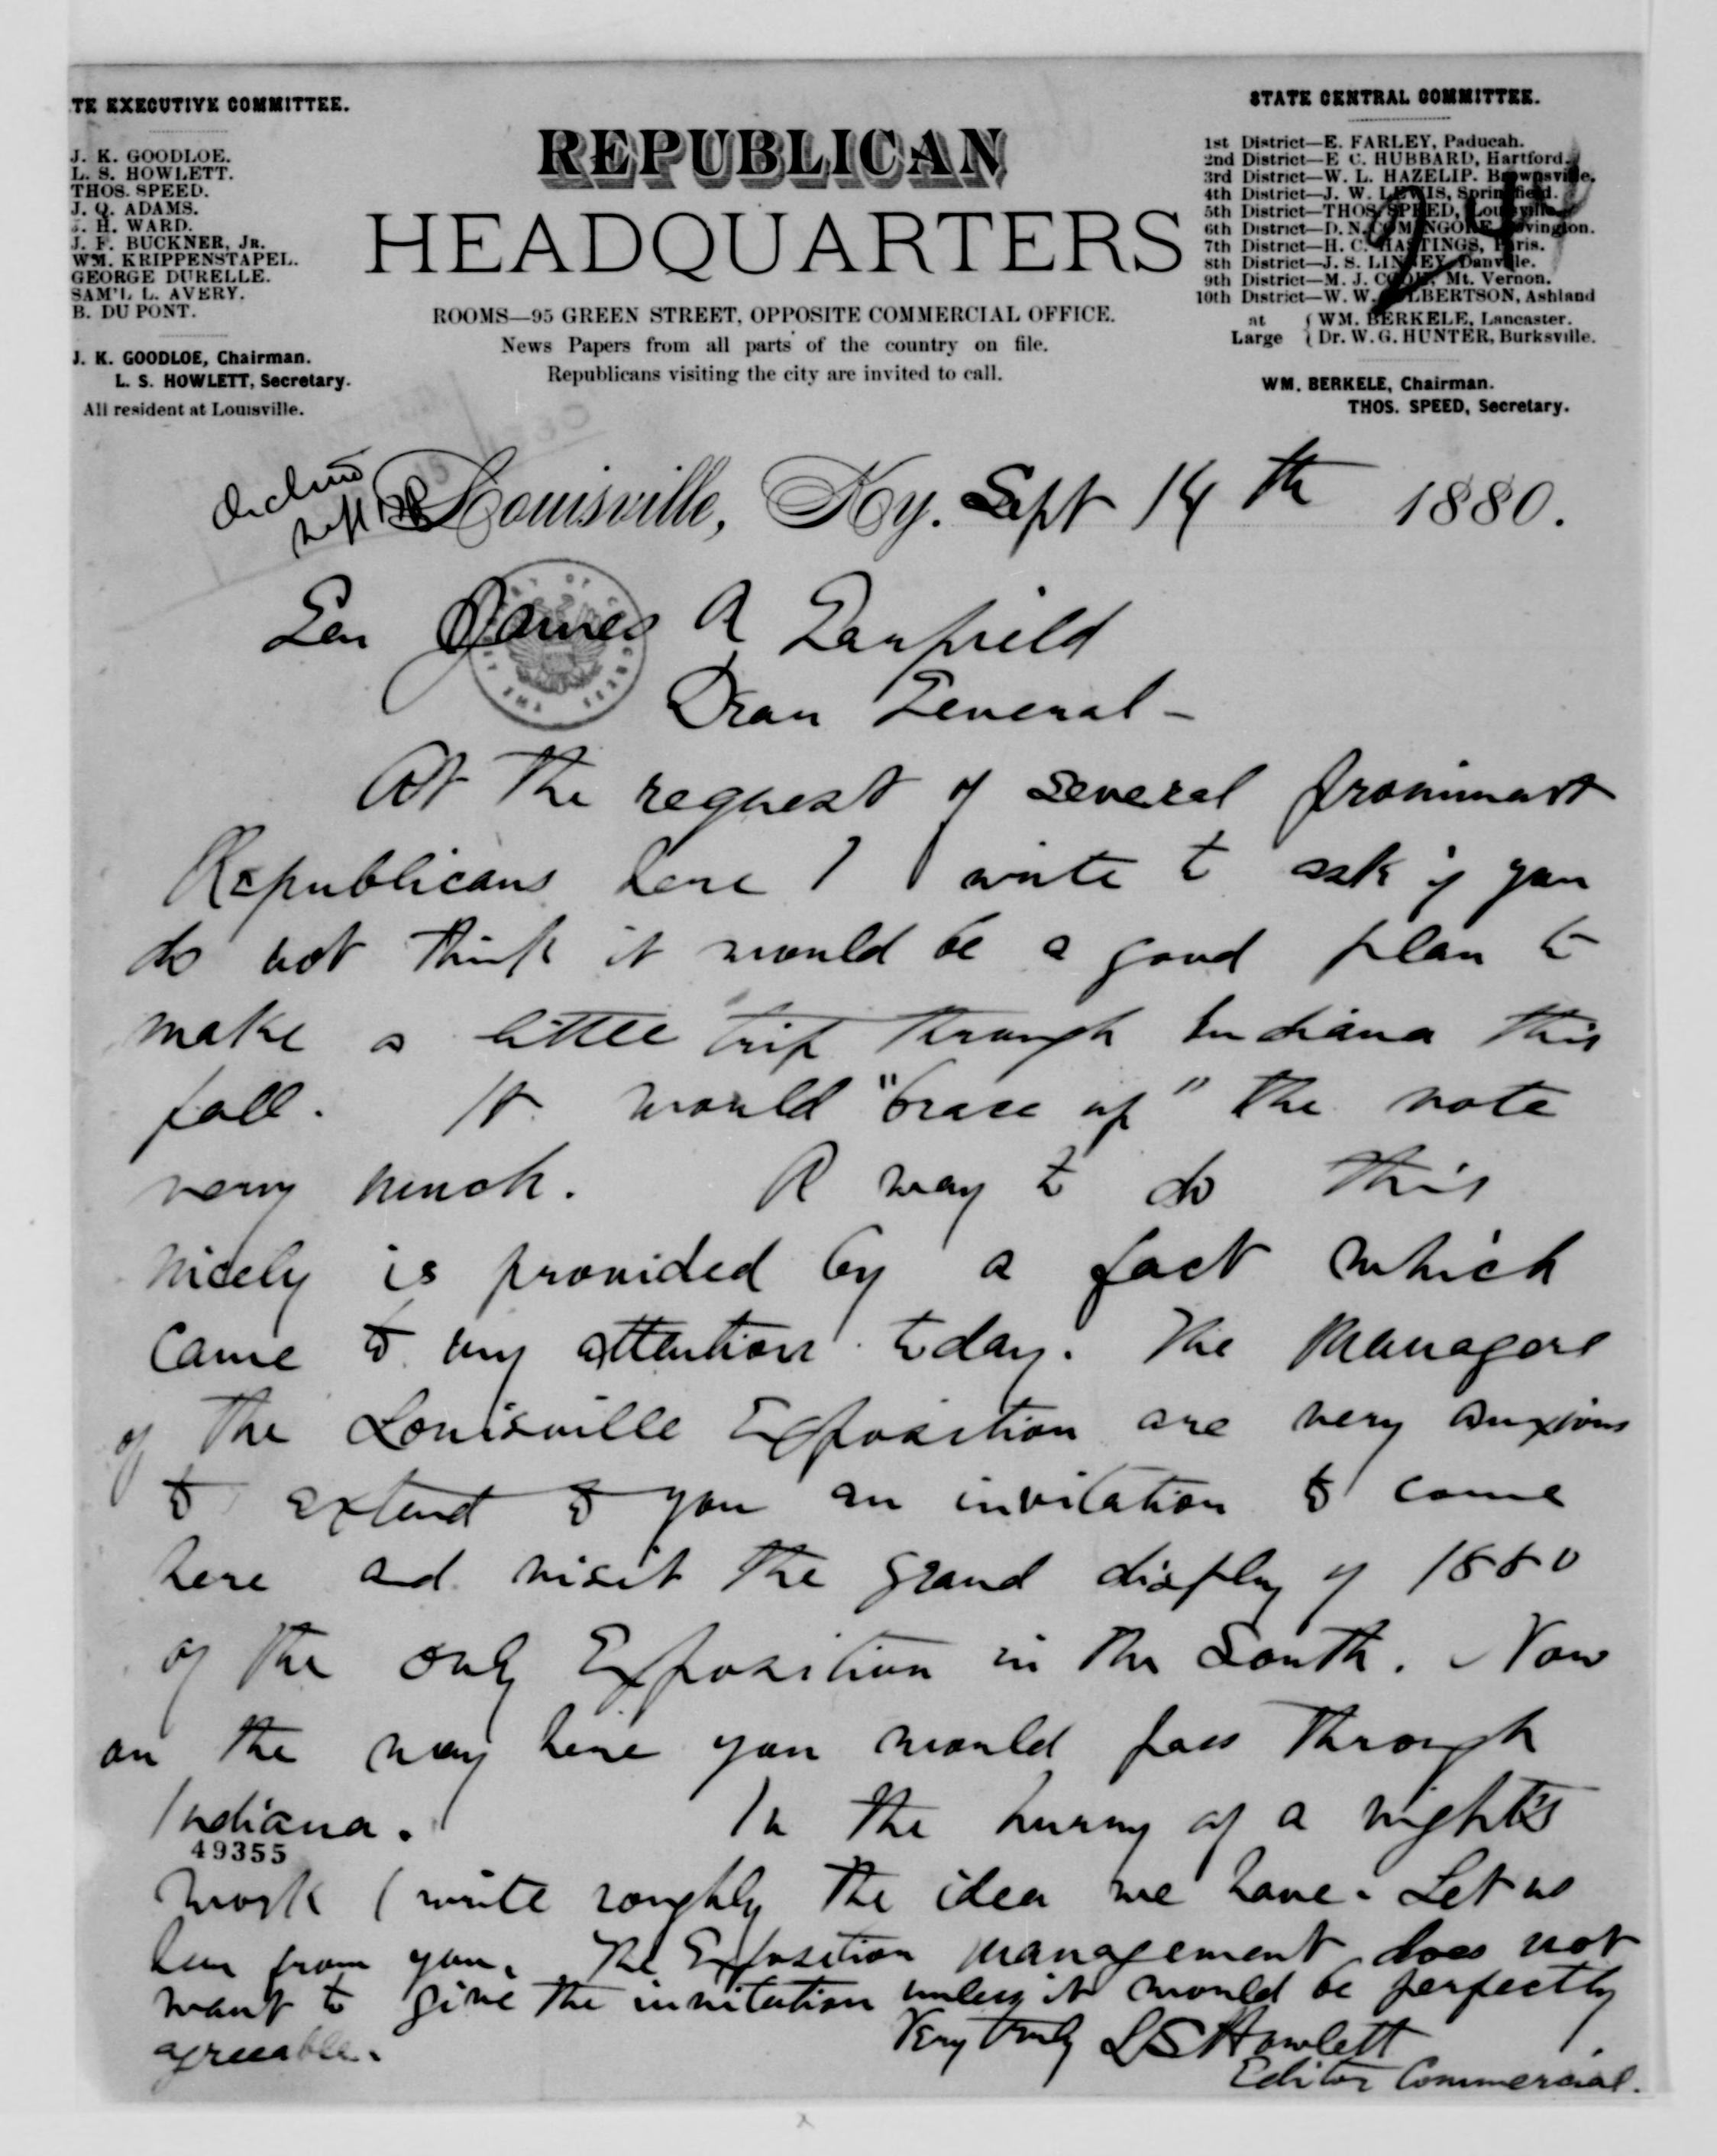 TE EXECUTIVE COMMITTEE.
J. K. GOODLOE.
L. S. HOWLETT.
THOS. SPEED.
J. Q. ADAMS.
J. H. WARD.
J. F. BUCKNER, JR.
WM. KRIPPENSTAPEL.
GEORGE DURELLE.
SAM'L L. AVERY.
B. DU PONT.
J. K. GOODLOE, Chairman.
L. S. HOWLETT, Secretary.
All resident at Louisville.
REPUBLICAN
HEADQUARTERS
ROOMS—95 GREEN STREET, OPPOSITE COMMERCIAL OFFICE.
News Papers from all parts of the country on file.
Republicans visiting the city are invited to call.
STATE CENTRAL COMMITTEE.
1st District—E. FARLEY, Paducah.
2nd District—E C. HUBBARD, Hartford.
3rd District—W. L. HAZELIP. Brownsville.
4th District—J. W. LEWIS, Springfield.
5th District—THOS. SPEED, Louisville.
6th District—D. N. COMINGORE, Covington.
7th District—H. C. HASTINGS, Paris.
8th District—J. S. LINNEY, Danville.
9th District—M. J. COOK, Mt. Vernon.
10th District—W. W. CULBERTSON, Ashland
at Large { WM. BERKELE, Lancaster.
{ Dr. W. G. HUNTER, Burksville.
WM. BERKELE, Chairman.
THOS. SPEED, Secretary.
24
Louisville, Ky. Sept 14th 1880.
Gen James A Garfield
Dear General -
At the request of several prominent
Republicans here I write to ask if you
do not think it would be a good plan to
make a little trip through Indiana this
fall. It would "brace up" the vote
very much. A way to do this
nicely is provided by a fact which
came to my attention today. The Managers
of the Louisville Exposition are very anxious
to extend to you an invitation to come
here and visit the grand display of 1880
of the only Exposition in the South. Now
on the way here you would pass through
Indiana. In the hurry of a night's
49355
work I write roughly the idea we have. Let us
hear from you. The Exposition management does not
want to give the invitation unless it would be perfectly
agreeable.
Very truly LS Howlett
Editor Commercial.